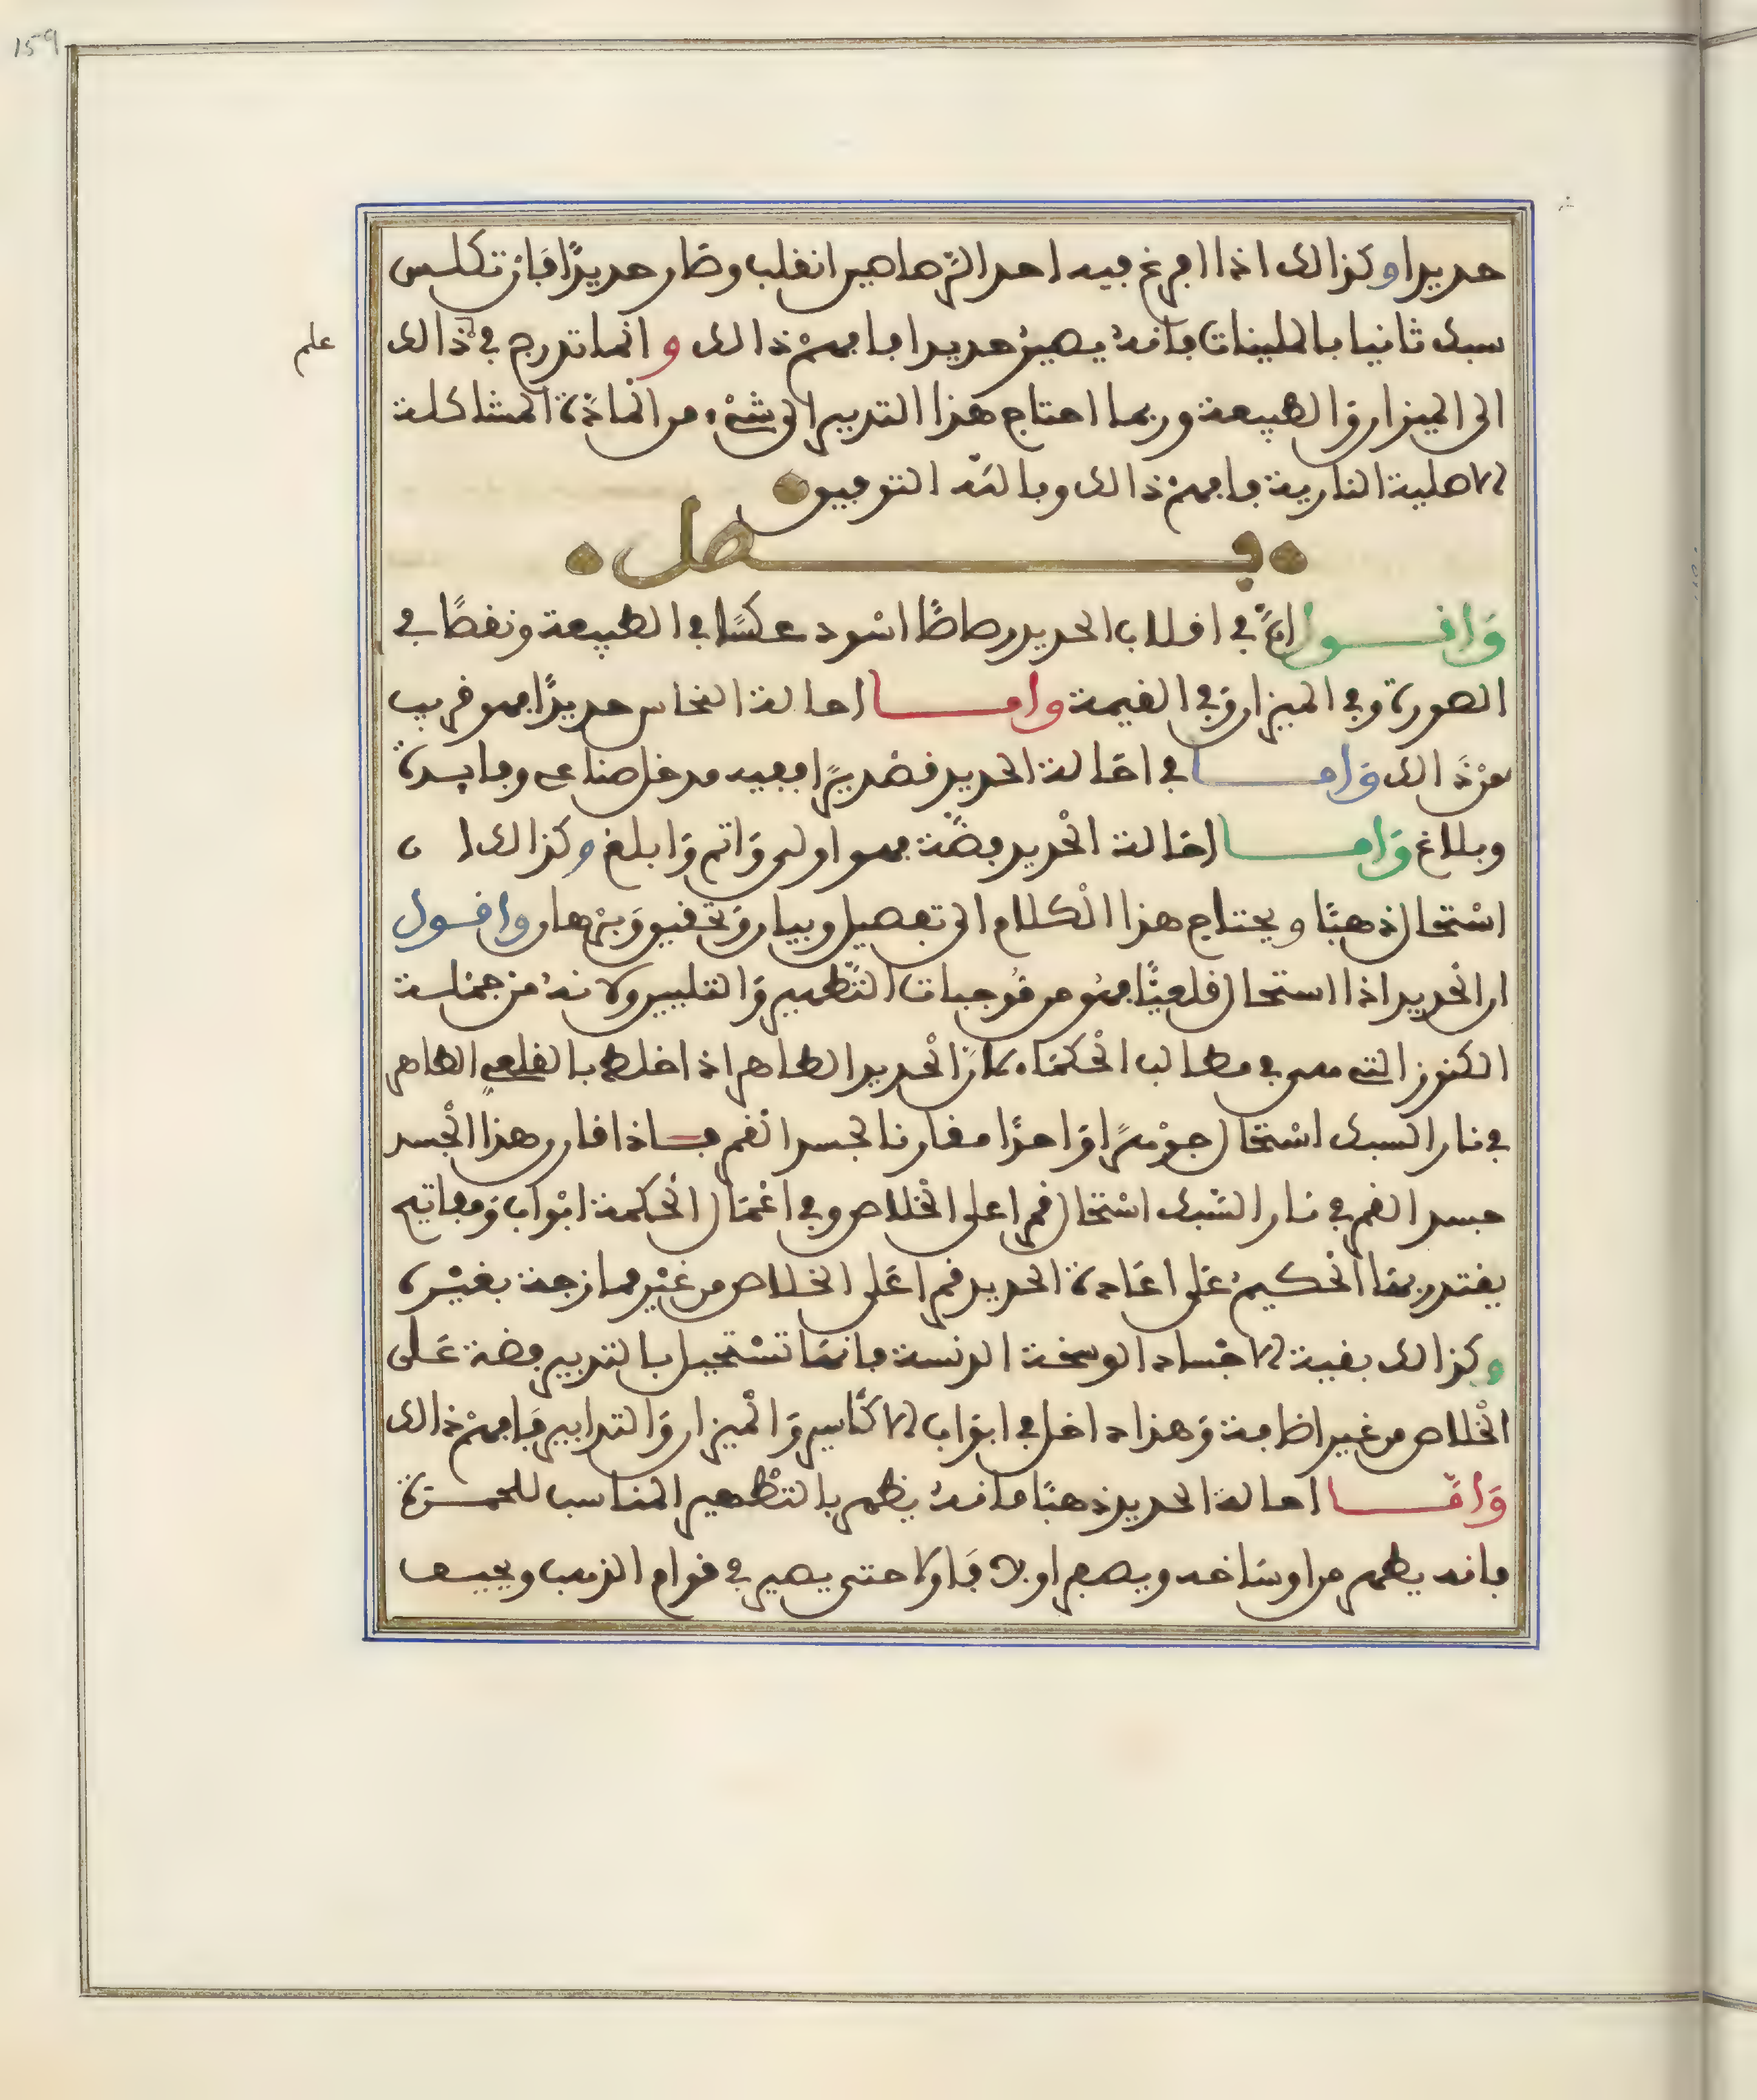 159
حديدا وكذالك اذا افرغ فيه احد الرصاصين انقلب وصار حديدًا فان تكلس
سبك ثانيا بالملينات فانه يصير حديدا فافهم ذالك وانما تدرج في ذالك
علم
الى الميزان والطبيعة وربما احتاج هذا التدبير الى شيء من المادة المشاكلة
الاصلية النارية فافهم ذالك وبالله التوفيق
فصل
واقول انّ في اقلاب الحديد رصاصًا اسود عكسًا في الطبيعة ونقصًا في
الصورة وفي الميزان وفي القيمة واما احالة النحاس حديدًا فهو قريب
من ذالك واما في احالة الحديد قصديرًا ففيه مدخل صناعي وفايدة
وبلاغ واما احالة الحديد فضّة فهو اولى واتم وابلغ وكذالك ان
استحال ذهبًا ويحتاج هذا الكلام الى تفصيل وبيان وتحقيق وبرهان واقول
ان الحديد اذا استحال قلعيًّا فهو من موجبات التّطهير والتليين ولانه من جملة
الكنوز التي هي في مطالب الحكماء كان الحديد الطاهر اذا خلط بالقلعي الطاهر
في نار السبك استحال جوهرًا واحدًا مقارنا لجسد القمر فاذا قارن هذا الجسد
جسد القمر في نار السّبك استحال قمرا على الخلاص وفي اعمال الحكمة ابواب ومفاتيح
يقتدر بها الحكيم على اعادة الحديد قمرا على الخلاص من غير ممازجة بغيره
وكذالك بقية الاجساد الوسخة الدنسة فانها تستحيل بالتدبير فضة على
الخلاص من غير اضافة وهذا داخل في ابواب الاكاسير والميزان والتدابير فافهم ذالك
وامّا احالة الحديد ذهبًا فانه يظهر بالتطهير المناسب للحمرة
فانه يطهر من اوساخه ويصعر اولا فاولا حتى يصير في قوام الذهب ويجيب